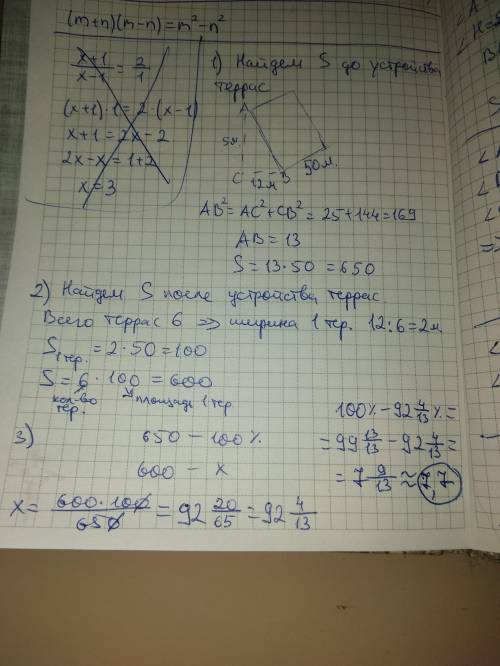 (m+n)(m-n)=m²-n²
x+1/x-1 = 2/1
(x+1)·1=2·(x-1)
x+1=2x-2
2x-x=1+2
x=3
1) Найдем S до устройства
террас
A
5м.
C 12м B 50м.
AB²=AC²+CB²=25+144=169
AB=13
S=13·50=650
2) Найдем S после устройства террас.
Всего террас 6 => ширина 1 тер. 12:6=2м
S1тер. =2·50=100
S=6·100=600
кол-во тер. площадь 1 тер
3) 650 - 100%
600 - x
x= 600·100/650 = 92 20/65 = 92 4/13
100%-92 4/13 %=
=99 13/13 - 92 4/13 =
=7 9/13 ≈ 7,7